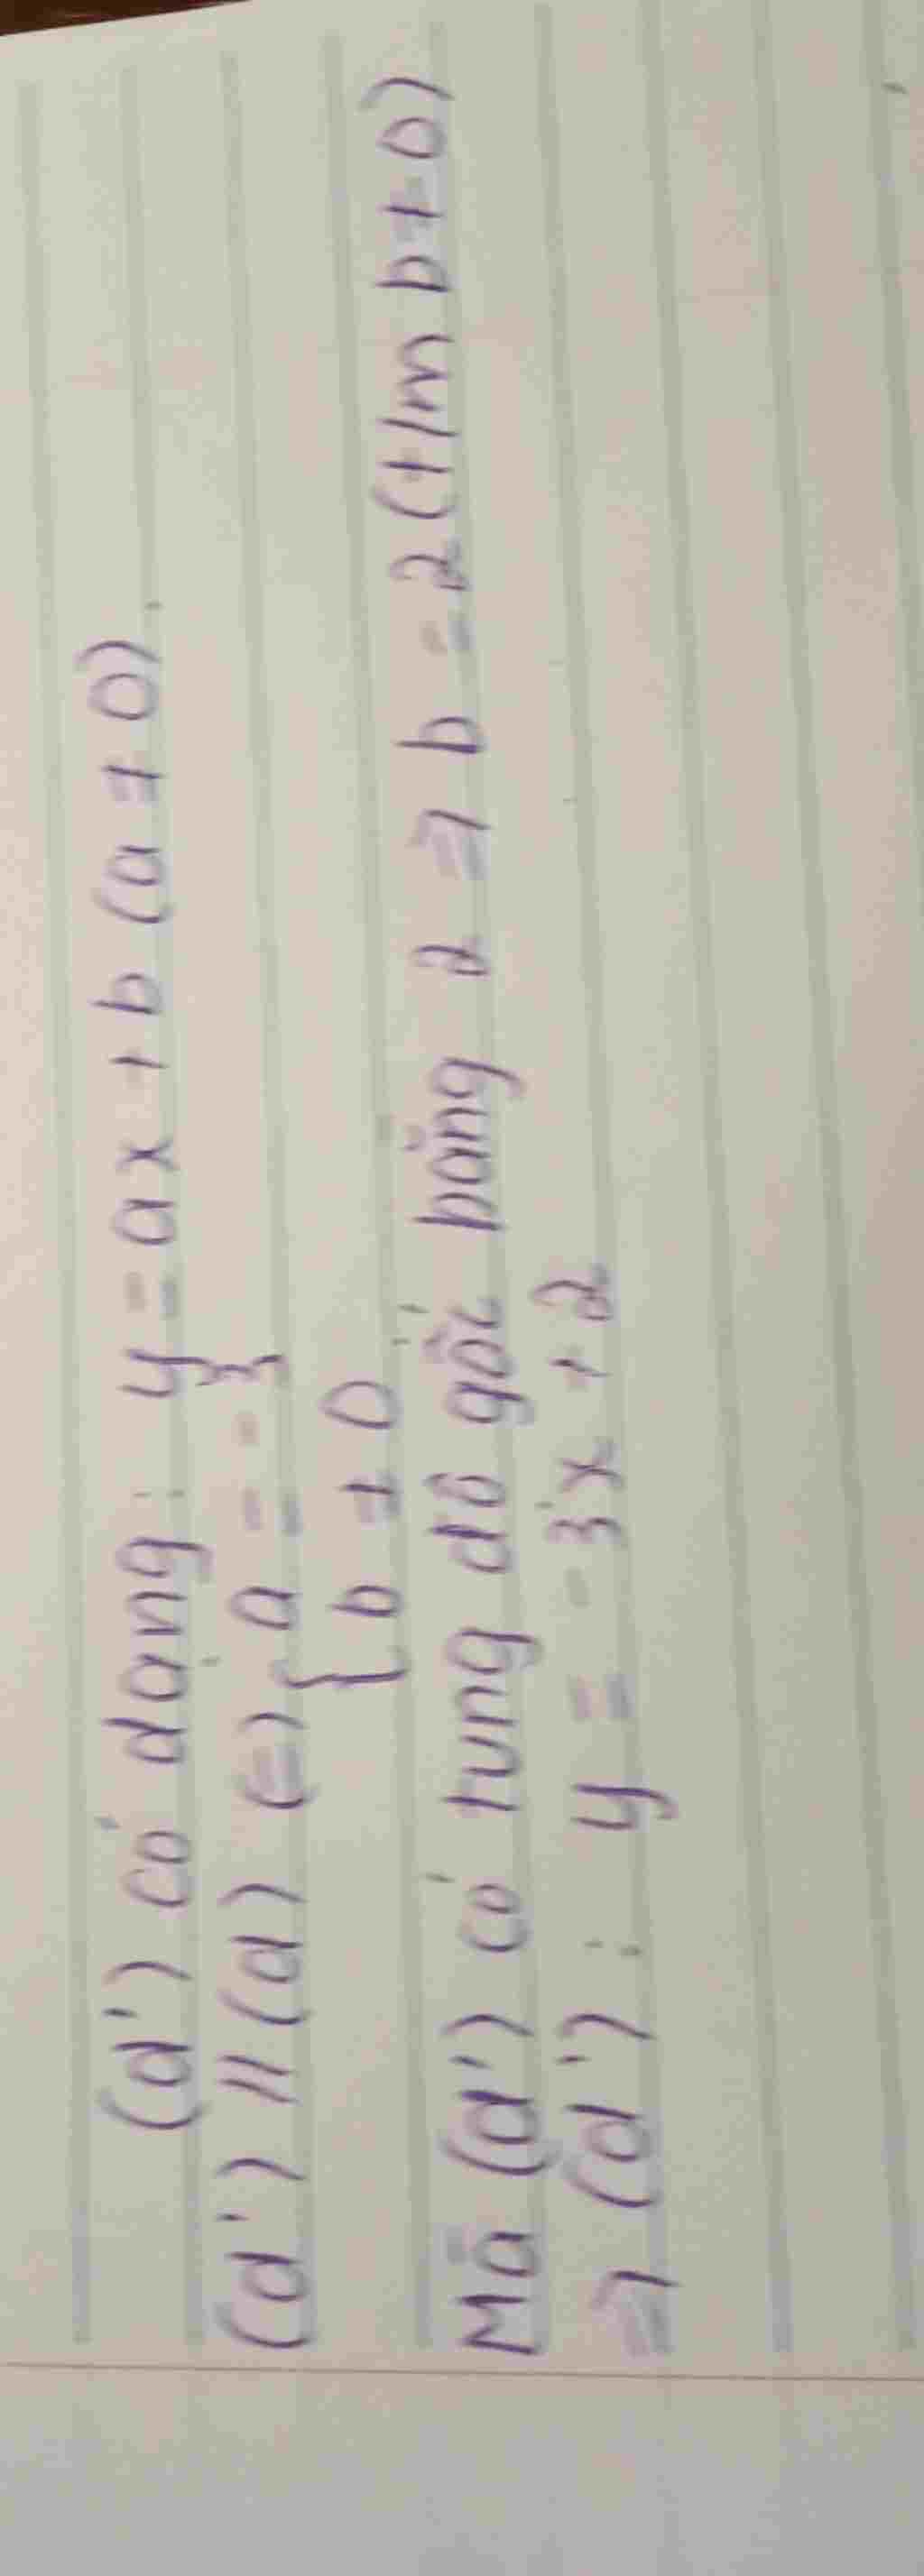 (d') có dạng: y = ax + b (a ≠ 0)
(d') // (d) <=> { a = -3
b ≠ 0
Mà (d') có tung độ gốc bằng 2 => b = 2 (t/m b ≠ 0)
=> (d') : y = -3x + 2